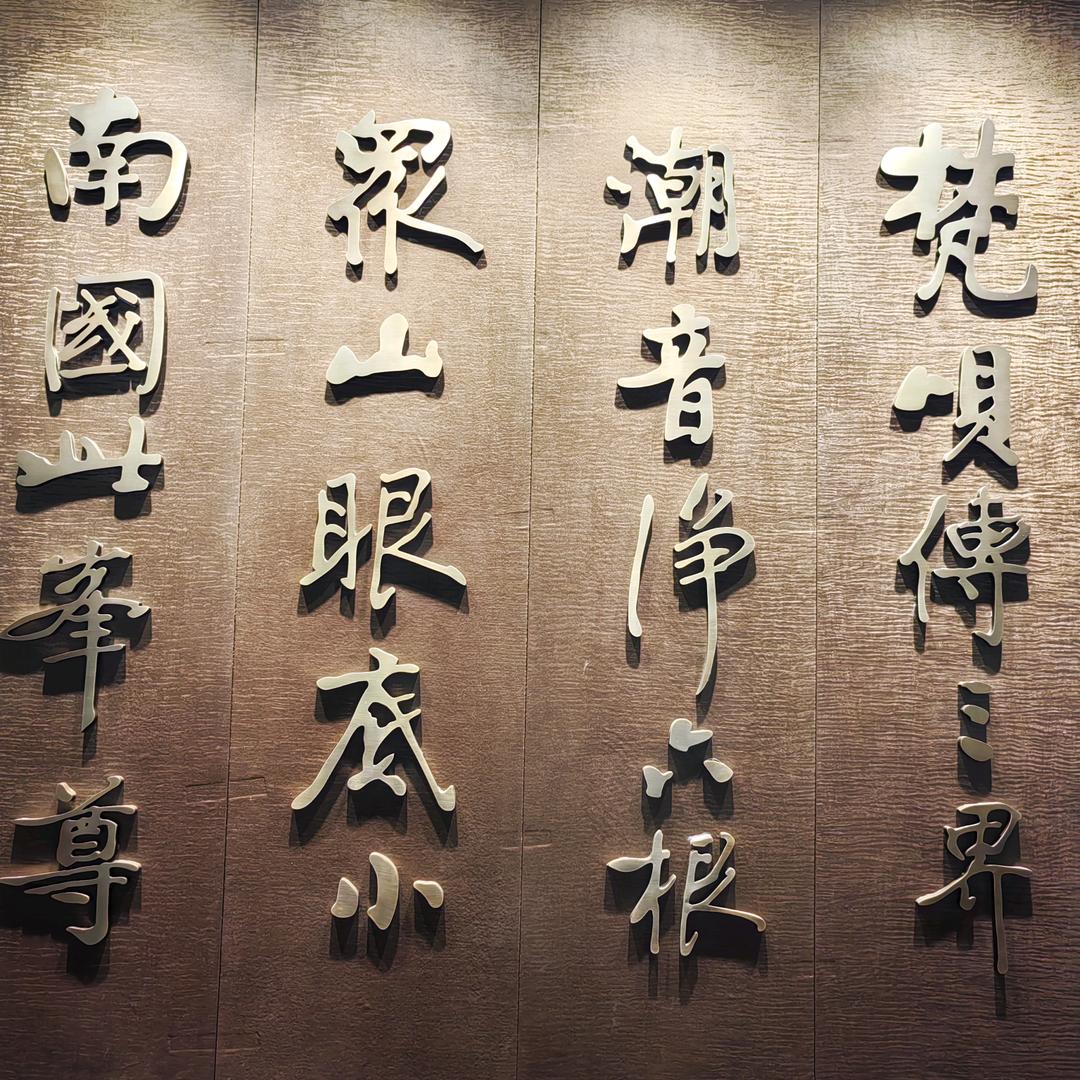 梵唄傳三界
潮音淨六根
眾山眼底小
南國此峯尊